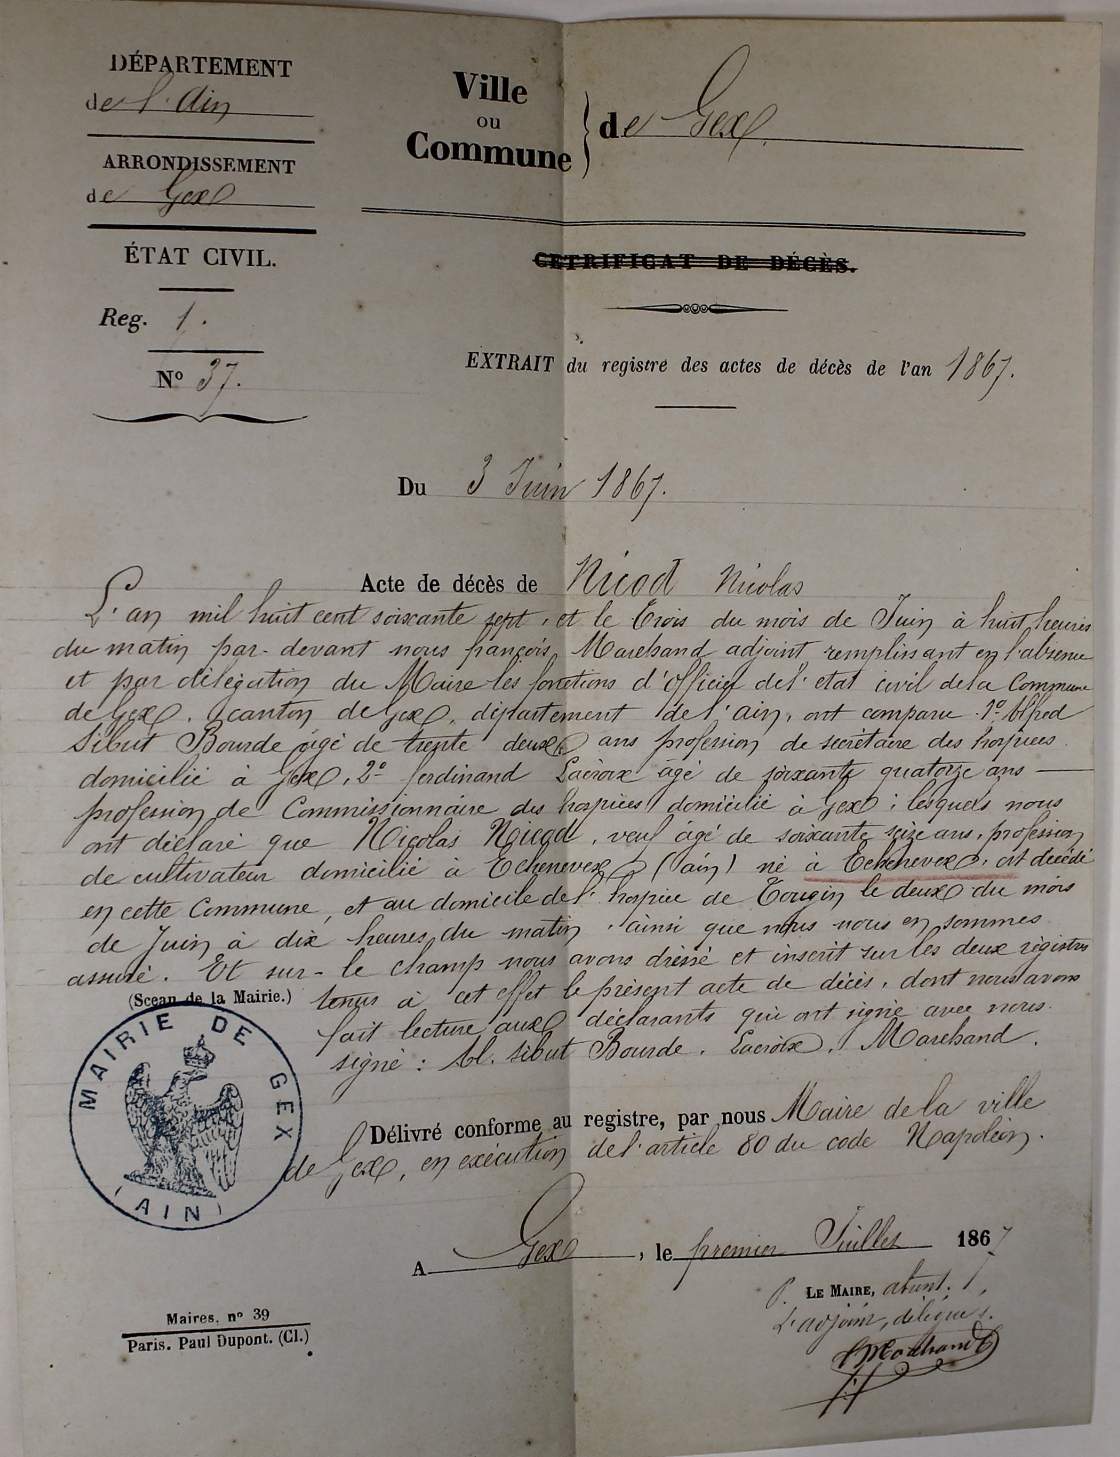 DÉPARTEMENT
de l'Ain
ARRONDISSEMENT
de Gex
ÉTAT CIVIL.
Reg. 1.
Nº 37.
Ville
ou
Commune
de Gex.
CETRIFICAT DE DÉCÈS.
EXTRAIT du registre des actes de décès de l'an 1867.
Du 3 Juin 1867.
Acte de décès de Nicod Nicolas
L'an mil huit cent soixante sept, et le Trois du mois de Juin à huit heures
du matin par-devant nous françois Marchand adjoint remplissant en l'absence
et par délégation du Maire les fonctions d'Officier de l'état civil de la Commune
de Gex, canton de Gex, département de l'ain, ont comparu 1º Alfred
Sibut Bourde âgé de trente deux ans profession de secrétaire des hospices
domicilié à Gex, 2º ferdinand Lacroix âgé de soixante quatorze ans —
profession de Commissionnaire des hospices domicilié à Gex ; lesquels nous
ont déclaré que Nicolas Nicod, veuf âgé de soixante seize ans, profession
de cultivateur domicilié à Echenevex (ain) né à Echenevex, est décédé
en cette Commune, et au domicile de l'hospice de Tougin le deux du mois
de Juin à dix heures du matin, ainsi que nous nous en sommes
assuré. Et sur-le champ nous avons dréssé et inscrit sur les deux régistres
(Sceau de la Mairie.)
tenus à cet effet le présent acte de décès, dont nous avons
fait lecture aux déclarants qui ont signé avec nous.
signé : Al. Sibut Bourde. Lacroix. Marchand.
MAIRIE DE GEX
(AIN)
Délivré conforme au registre, par nous Maire de la ville
de Gex, en exécution de l'article 80 du code Napoléon.
A Gex, le premier Juillet 1867
P. LE MAIRE, absent,
L'adjoint, délégué.
Marchand
Maires, nº 39
Paris. Paul Dupont. (Cl.)